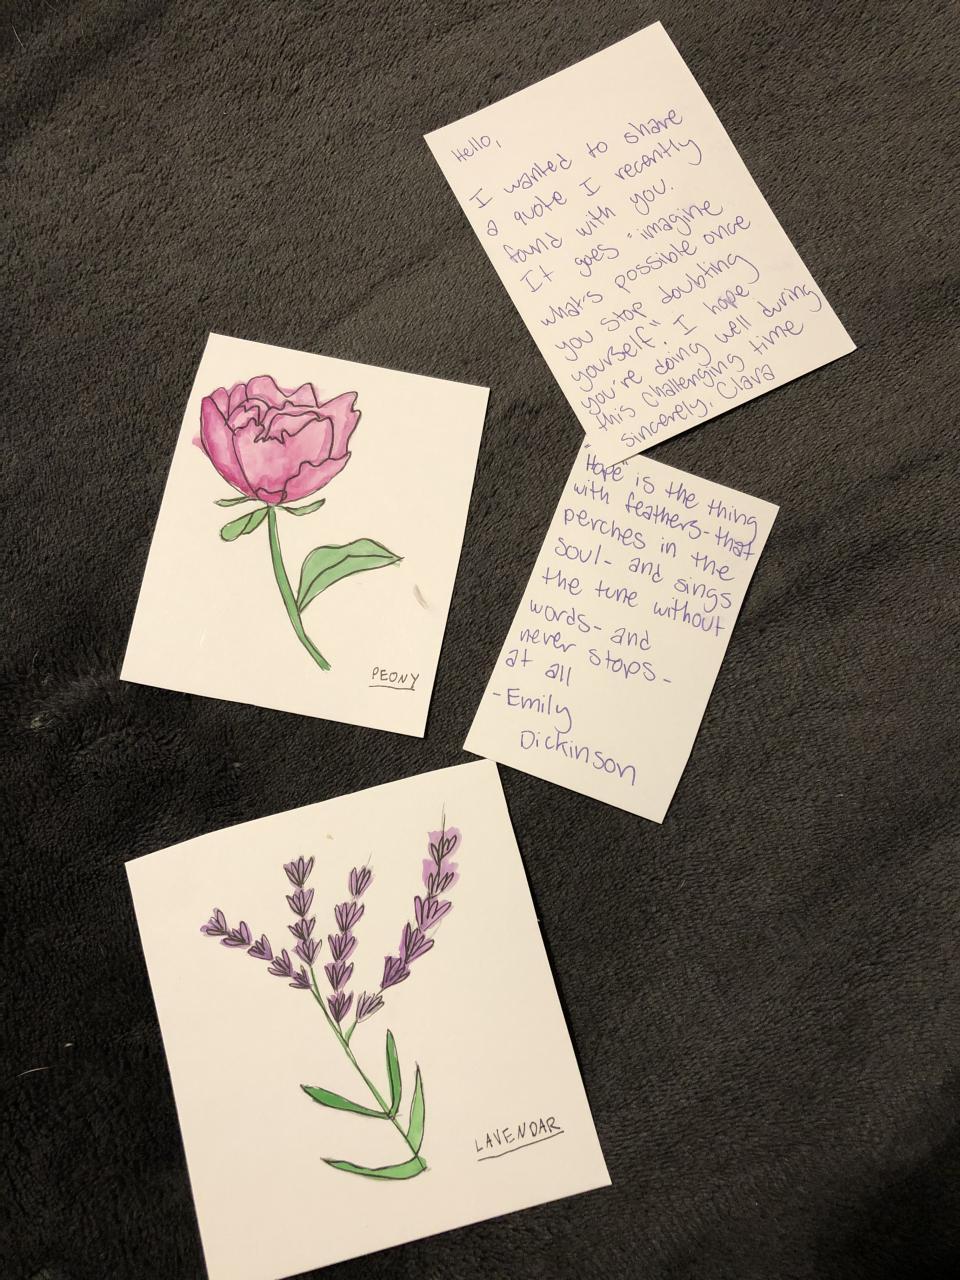 Hello,
I wanted to share
a quote I recently
found with you.
It goes "imagine
what's possible once
you stop doubting
yourself". I hope
you're doing well during
this challenging time
sincerely, Clara
"Hope" is the thing
with feathers- that
perches in the
soul- and sings
the tune without
words- and
never stops-
at all
-Emily
Dickinson
PEONY
LAVENDAR